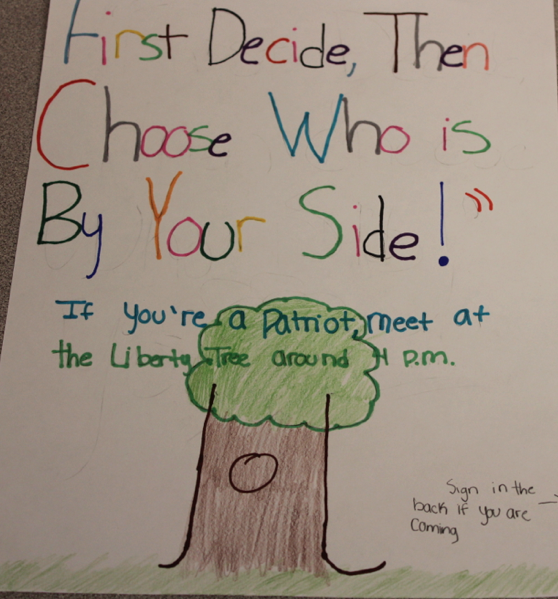 First Decide, Then
Choose Who is
By Your Side!"
If you're a Patriot, meet at
the Liberty Tree around 4 p.m.
Sign in the
back if you are
Coming